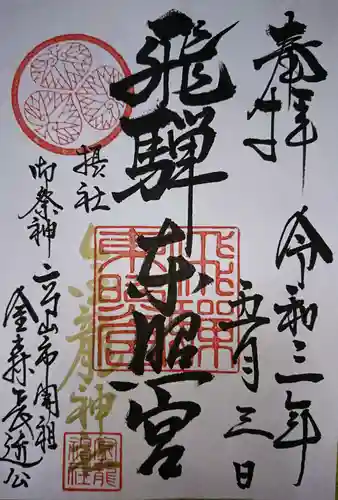 奉拝
令和三年
五月三日
飛騨東照宮
摂社
金龍神
御祭神
高山市開祖
金森長近公